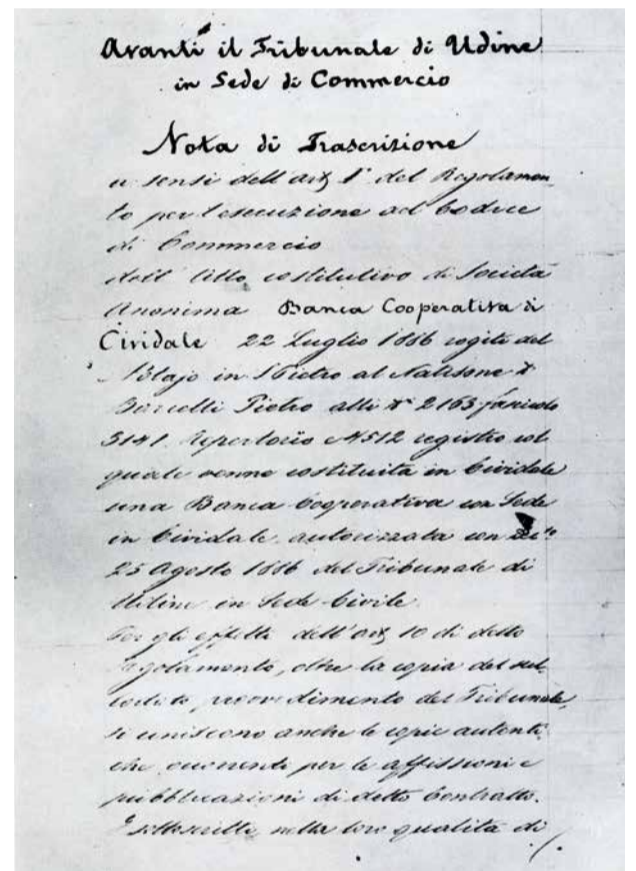 Avanti il Tribunale di Udine
in Sede di Commercio
Nota di Trascrizione
a sensi dell'art 1° del Regolamen
to per l'esecuzione del Codice
di Commercio
dell'Atto costitutivo di Società
Anonima Banca Cooperativa di
Cividale 22 Luglio 1886 rogito del
Notajo in S Pietro al Natisone
Pietro alli N° 2163 fascicolo
3141 Repertorio N 512 registro col
quale venne costituita in Cividale
una Banca Cooperativa con Sede
in Cividale autorizzata con
25 Agosto 1886 del Tribunale di
Udine in Sede Civile.
Per gli effetti dell'art 10 di detto
regolamento, oltre la copia del sul
lodato provvedimento del Tribunale,
si uniscono anche le copie autenti
che occorrende per le affissioni e
pubblicazioni di detto Contratto.
I sottoscritti nella loro qualità di